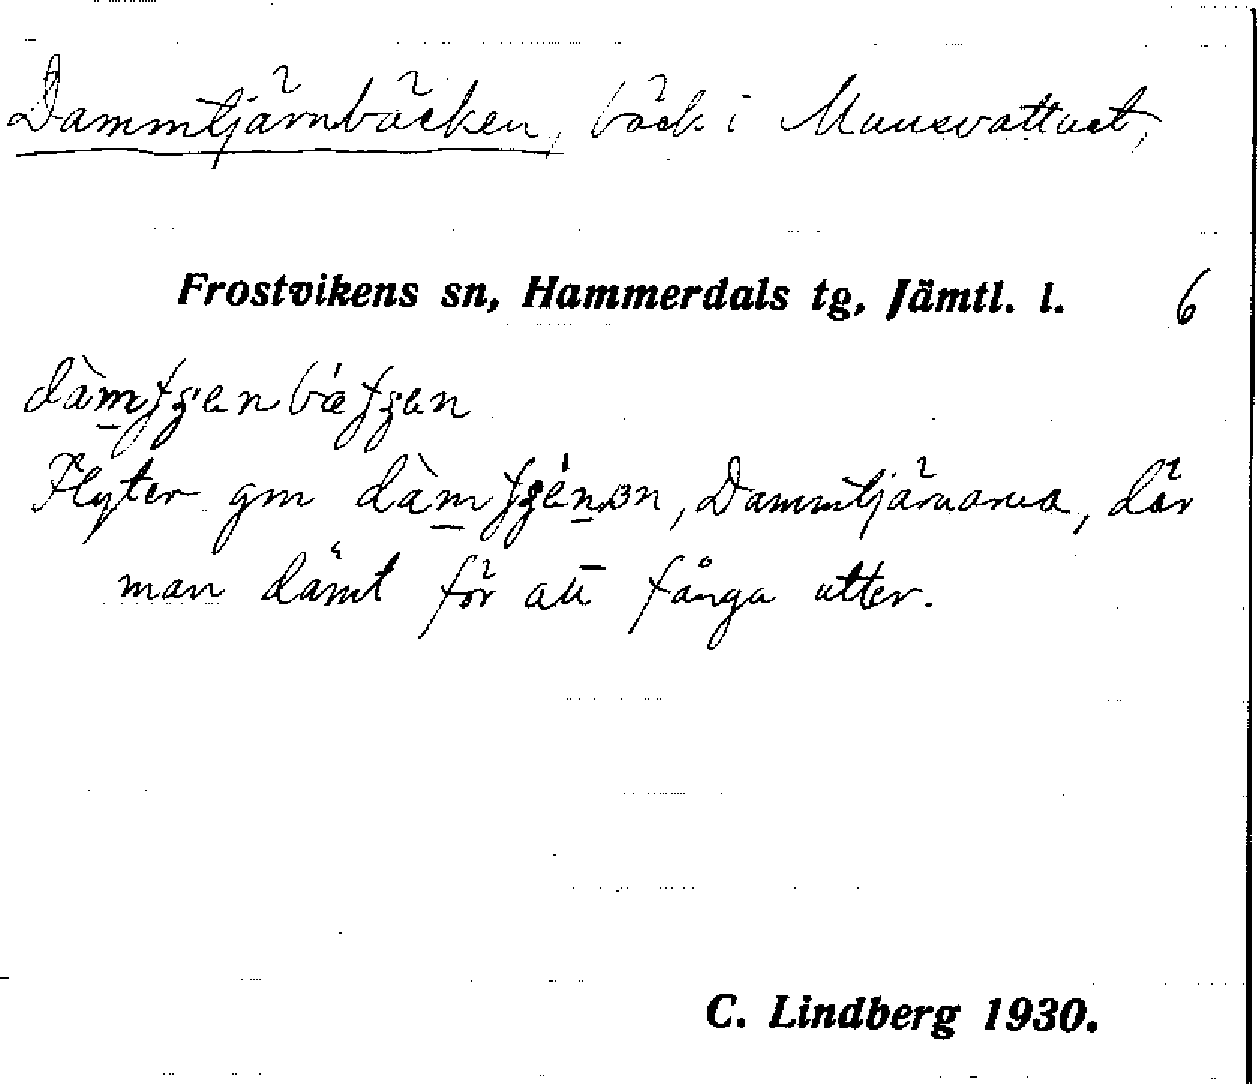 Dammtjärnbäcken, bäck i Munsvattnet,
Frostvikens sn, Hammerdals tg, Jämtl. l. 6
Flyter gm Dammtjärnarna, där
man dämt för att fånga utter.
C. Lindberg 1930.